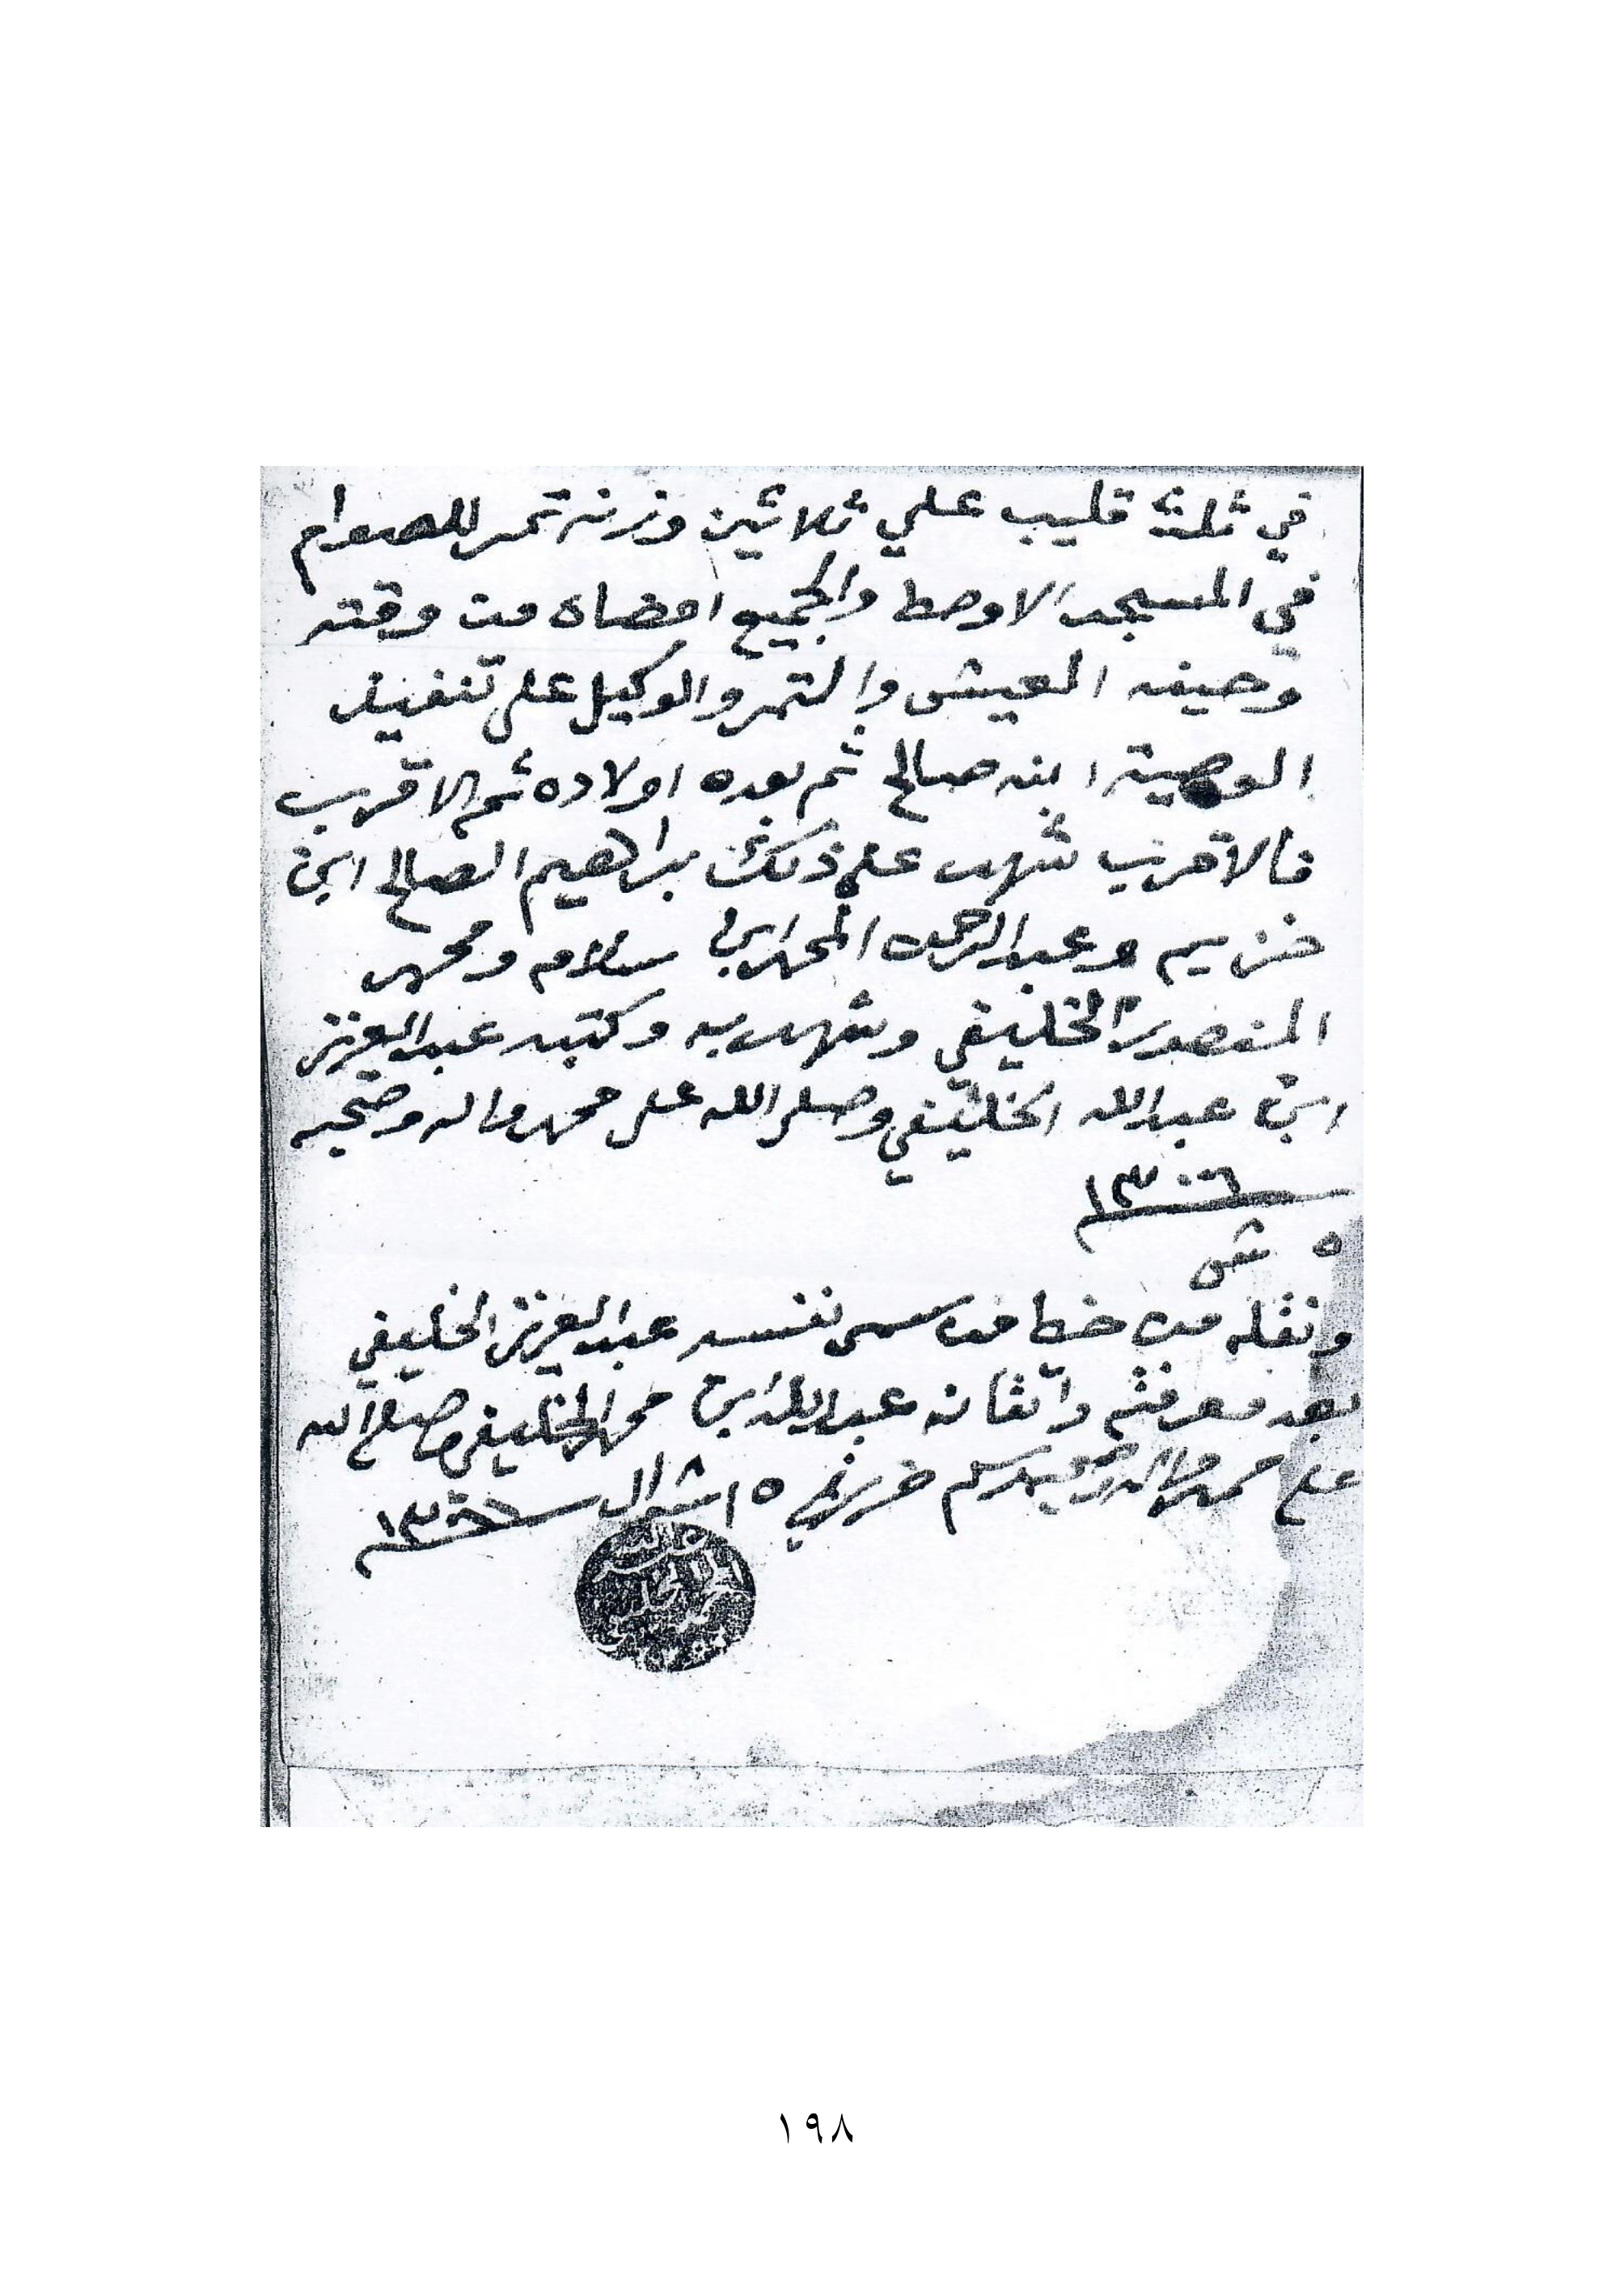 في ثلث قليب علي ثلاثين وزنة تمر للصوام
في المسجد الاوصط والجميع امضاه من وقته
وصينه العيش والتمر والوكيل على تنفيذ
الوصية ابنه صالح ثم بعده اولاده ثم الاقرب
فالاقرب شهد على ذلك براهيم الصالح ابن
خزيم وعبدالرحمن المحارب سلام ومحمد
المنصور الخليفي وشهد به وكتبه عبدالعزيز
ابن عبدالله الخليفي وصلى الله على محمد واله وصحبه
١٣٠٦
٥ ش
ونقله من خط من سمى نفسه عبدالعزيز الخليفي
بعد معرفته واتقانه عبدالله ابن محمد الخليفي وصلى الله
على محمد واله وصحبه وسلم في ١٥ شوال
١٩٨